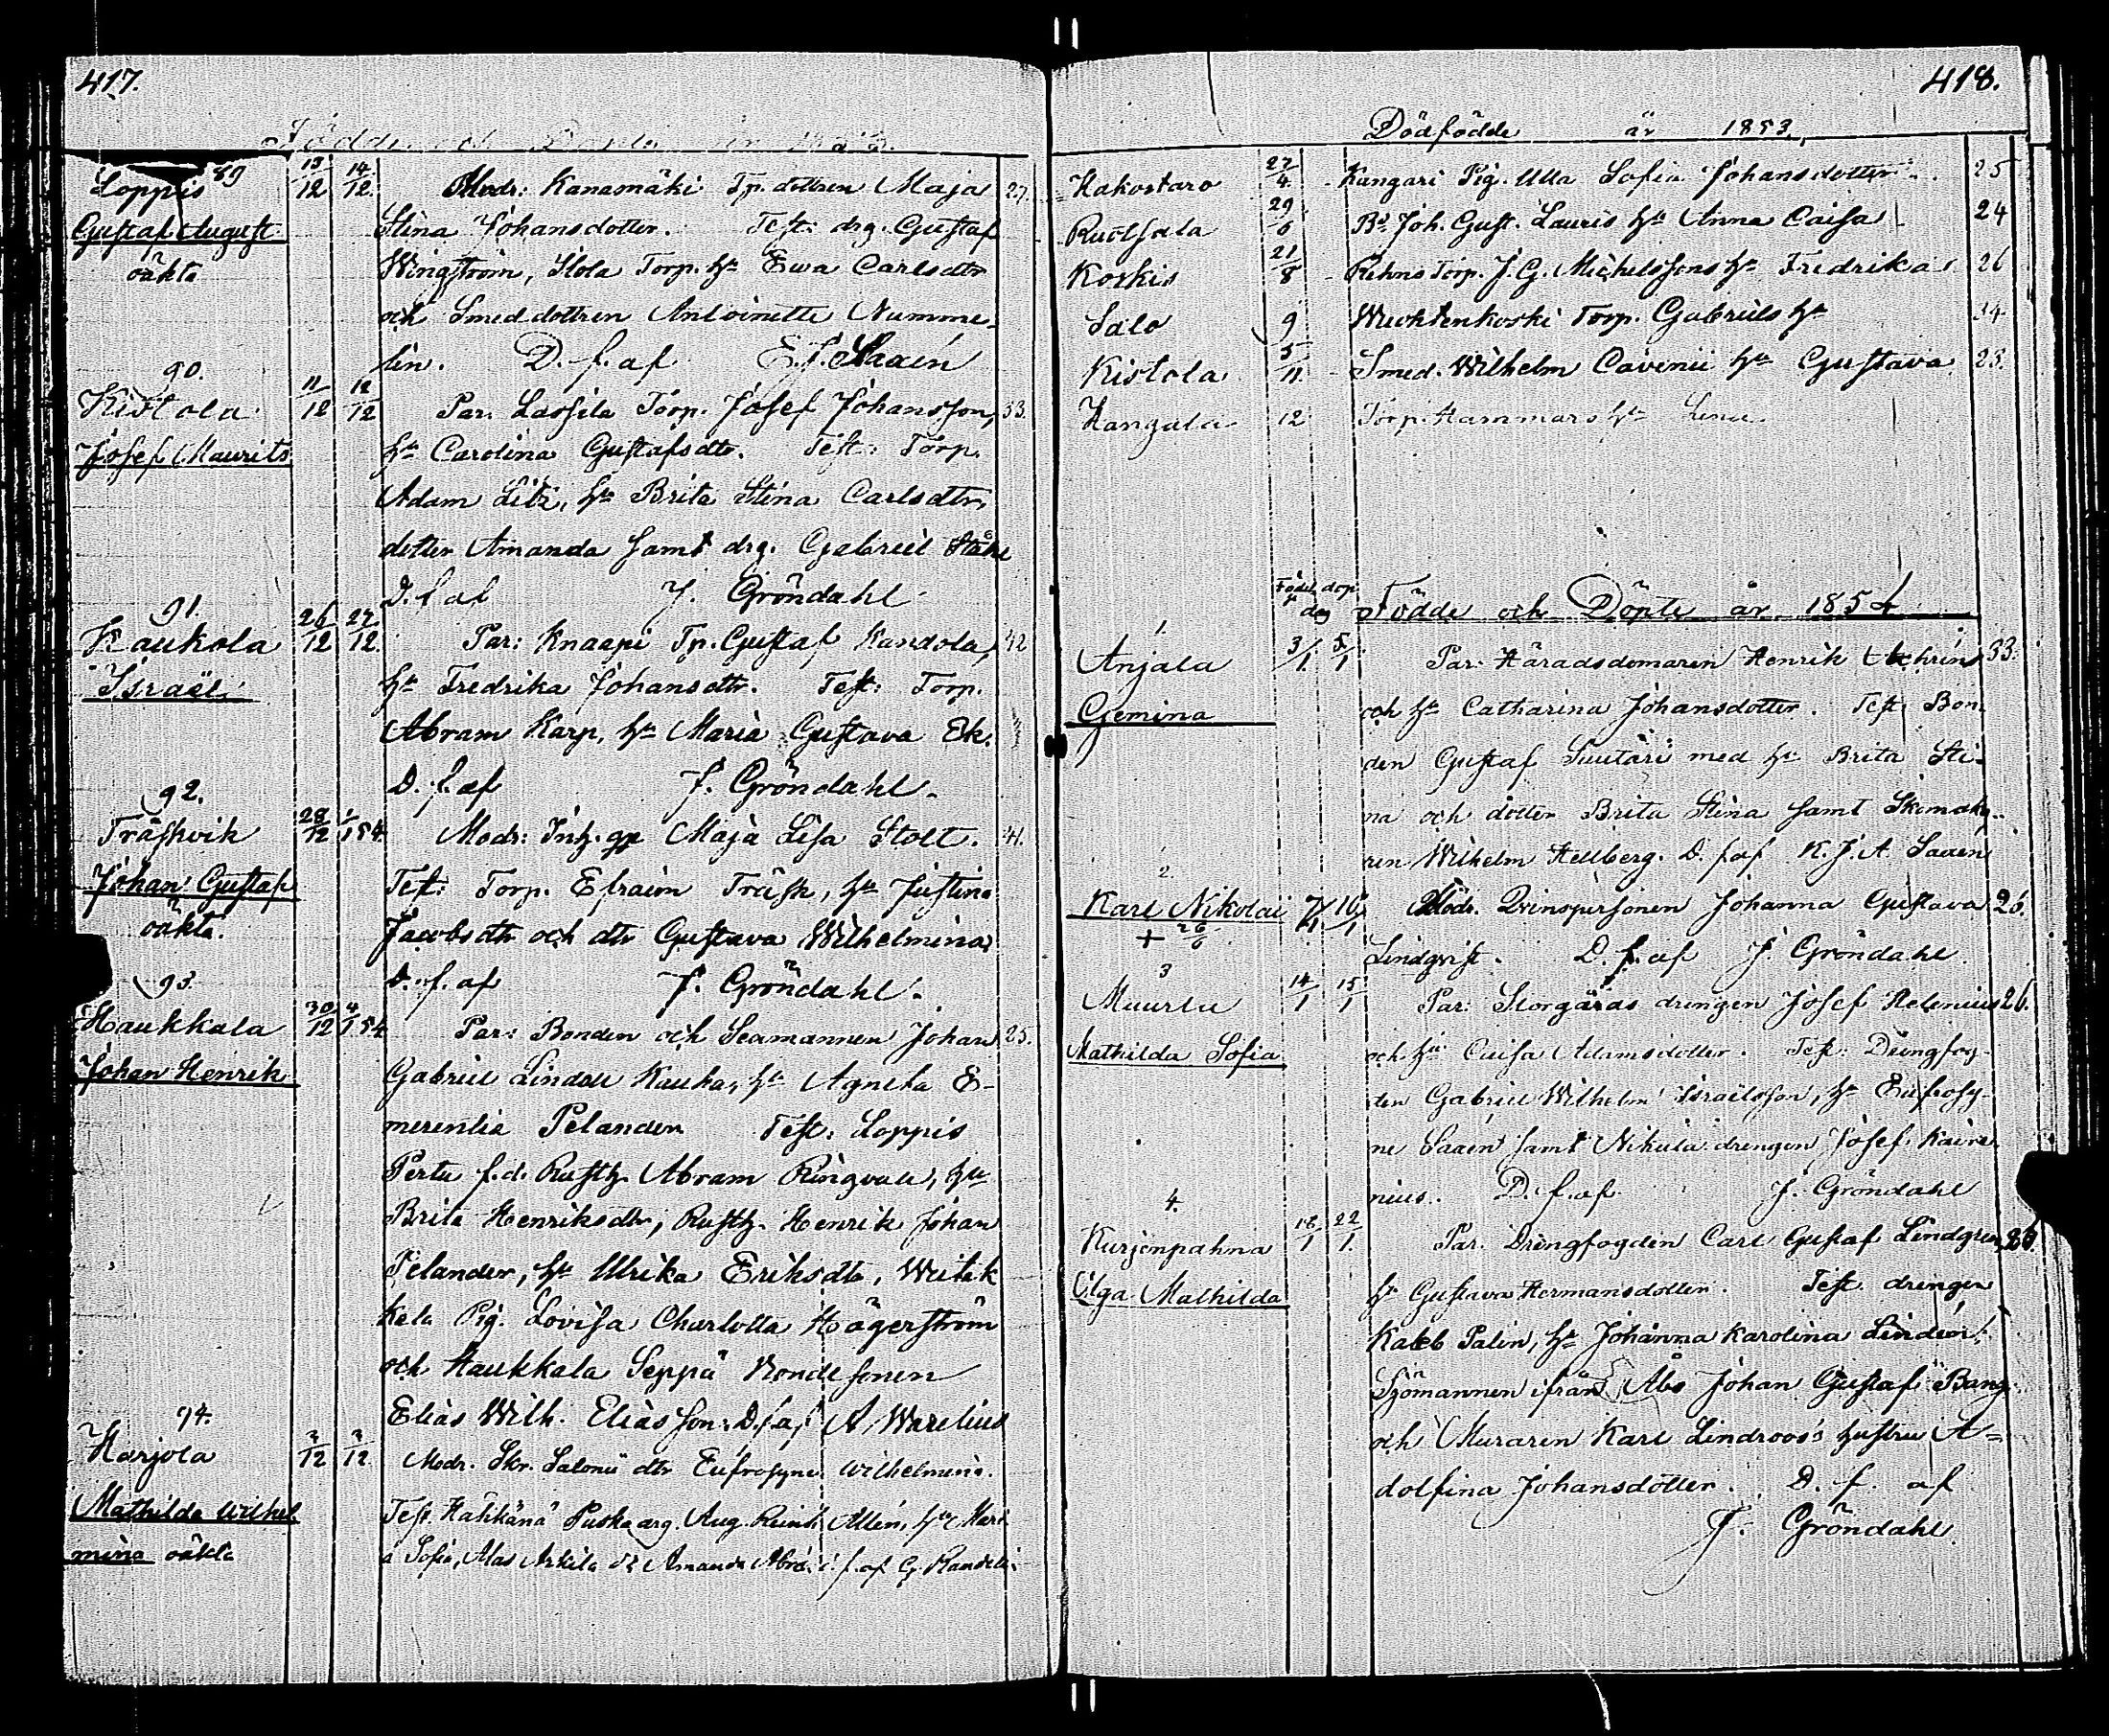 417.
Födde och Döpte år 1853.
89
Loppis 13/12 14/12. Modr: Kanamäki Tp. dottren Maja 27.
Gustaf August Stina Johansdotter. Test: drg. Gustaf
oäkta Wingström, Isola Torp. hu Ewa Carlsdtr
och Smeddottren Antoinette Numme-
lin. D. f. af E. J. Saxén
90.
Kistola 11/12 12/12 Par. Lassila Torp. Josef Johansson, 33.
Josef Maurits hu Carolina Gustafsdtr. Test: Torp.
Adam Litz, hu Brita Stina Carlsdtr,
dotter Amanda samt drg. Gabriel
D. f. af J. Gröndahl
91.
Kaukola 26/12 27/12. Par: Knaapi Tp. Gustaf Kandola, 42
Israël hu Fredrika Johansdtr. Test: Torp.
Abram Karp, hu Maria Gustava Ek.
D. f. af J. Gröndahl.
92.
Träskvik 28/12 1/1 54. Modr: Inh. Maja Lisa Stolt. 41.
Johan Gustaf Test: Torp. Efraim Träsk, hu Justina
oäkta. Jacobsdtr och dtr Gustava Wilhelmina
D. f. af J. Gröndahl.
93.
Haukkala 30/12 4/1 54 Par: Bonden och Seamannen Johan 25.
Johan Henrik Gabriel Lindell Kauka, hu Agneta E-
merentia Pelander Test: Loppis
Pertu f.d. Rusth. Abram Ringvall, hu
Brita Henriksdtr, Rusth. Henrik Johan
Pelander, hu Ulrika Eriksdtr,
kala Pig. Lovisa Charlotta Hägerström
och Haukkala Seppä Bondesonen
Elias Wilh. Eliasson. D.f.af A. Warelius
94.
Harjola 2/12 3/12 Modr. Skr. Salonii dtr Eufrosyne Wilhelmina.
Mathilda Wilhel Test. Häkkänä Puska drg. Aug. Reinh. Allén, hu Mari
mina oäkta a Sofia, Alas Arkila Amanda f. af G.
418.
Dödfödde år 1853.
Kakostaro 27/4 - Kangari Pig. Ulla Sofia Johansdotter. 25
Ruotsala 29/6 Bd Joh. Gust. Lauris hu Anna Caisa 24
Koskis 21/8 - Rehns Torp. J. G. Michelssons hu Fredrika 26
Salo 9 Wuohtenkoski Torp. Gabriels hu 34
Kistola 5/11. - Smed. Wilhelm Cavenii hu Gustava 23.
Hangala 12 Torp. Hammars hu Lena
Födel. dop
dag Födde och Döpte år 1854
1.
Anjala 3/1 5/1 Par: Häradsdomaren Henrik 33.
Gemina och hu Catharina Johansdotter. Test. Bon-
den Gustaf Suutari med hu Brita Sti-
na och dotter Brita Stina samt Skomak-
ren Wilhelm Hellberg. D. f. af K. J. A. Saxen
2.
Karl Nikolai 7/1 10/1 Modr. Qvinspersonen Johanna Gustava 26.
+ 26/6 Lindqvist. D. f. af J. Gröndahl.
3
Muurlu 14/1 15/1 Par: Storgårds drengen Josef Helenius 26.
Mathilda Sofia och hu Caisa Adamsdotter. Test: Drengfog-
den Gabriel Wilhelm Israelsson, hu Eufrosy-
ne Saxén samt Nikula drengen Josef Kaire
nius. D. f. af. J. Gröndahl
4.
Kurjenpahna 18/1 22/1. Par. Drengfogden Carl Gustaf Lindgren,
Olga Mathilda hu Gustava Hermansdotter. Test. drengen
Kaleb Palin, hu Johanna Karolina Lindén,
Sjömannen ifrån Åbo Johan Gustaf Bang
och Muraren Karl Lindroos's hustru A=
dolfina Johansdotter. D. f. af
J. Gröndahl.